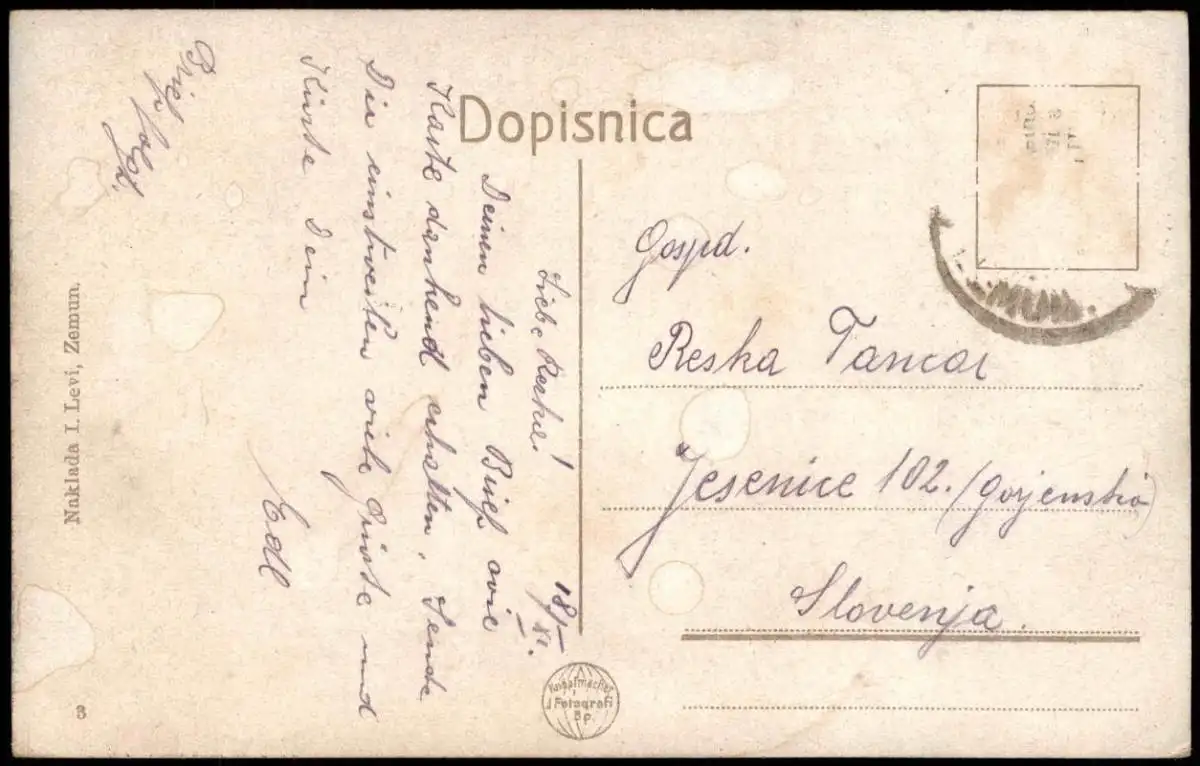 Dopisnica
Liebe Reskie! 18/XI.
Deinen lieben Brief wie
Karte dankend erhalten. Sende
Dir einstweilen viele Grüsse und
Küsse Dein
Edl
Brief
folgt.
Gospd.
Reska Tancar
Jesenice 102. (Gorjensko)
Slovenja.
Naklada I. Levi, Zemun.
3
Fotografi
Bp.